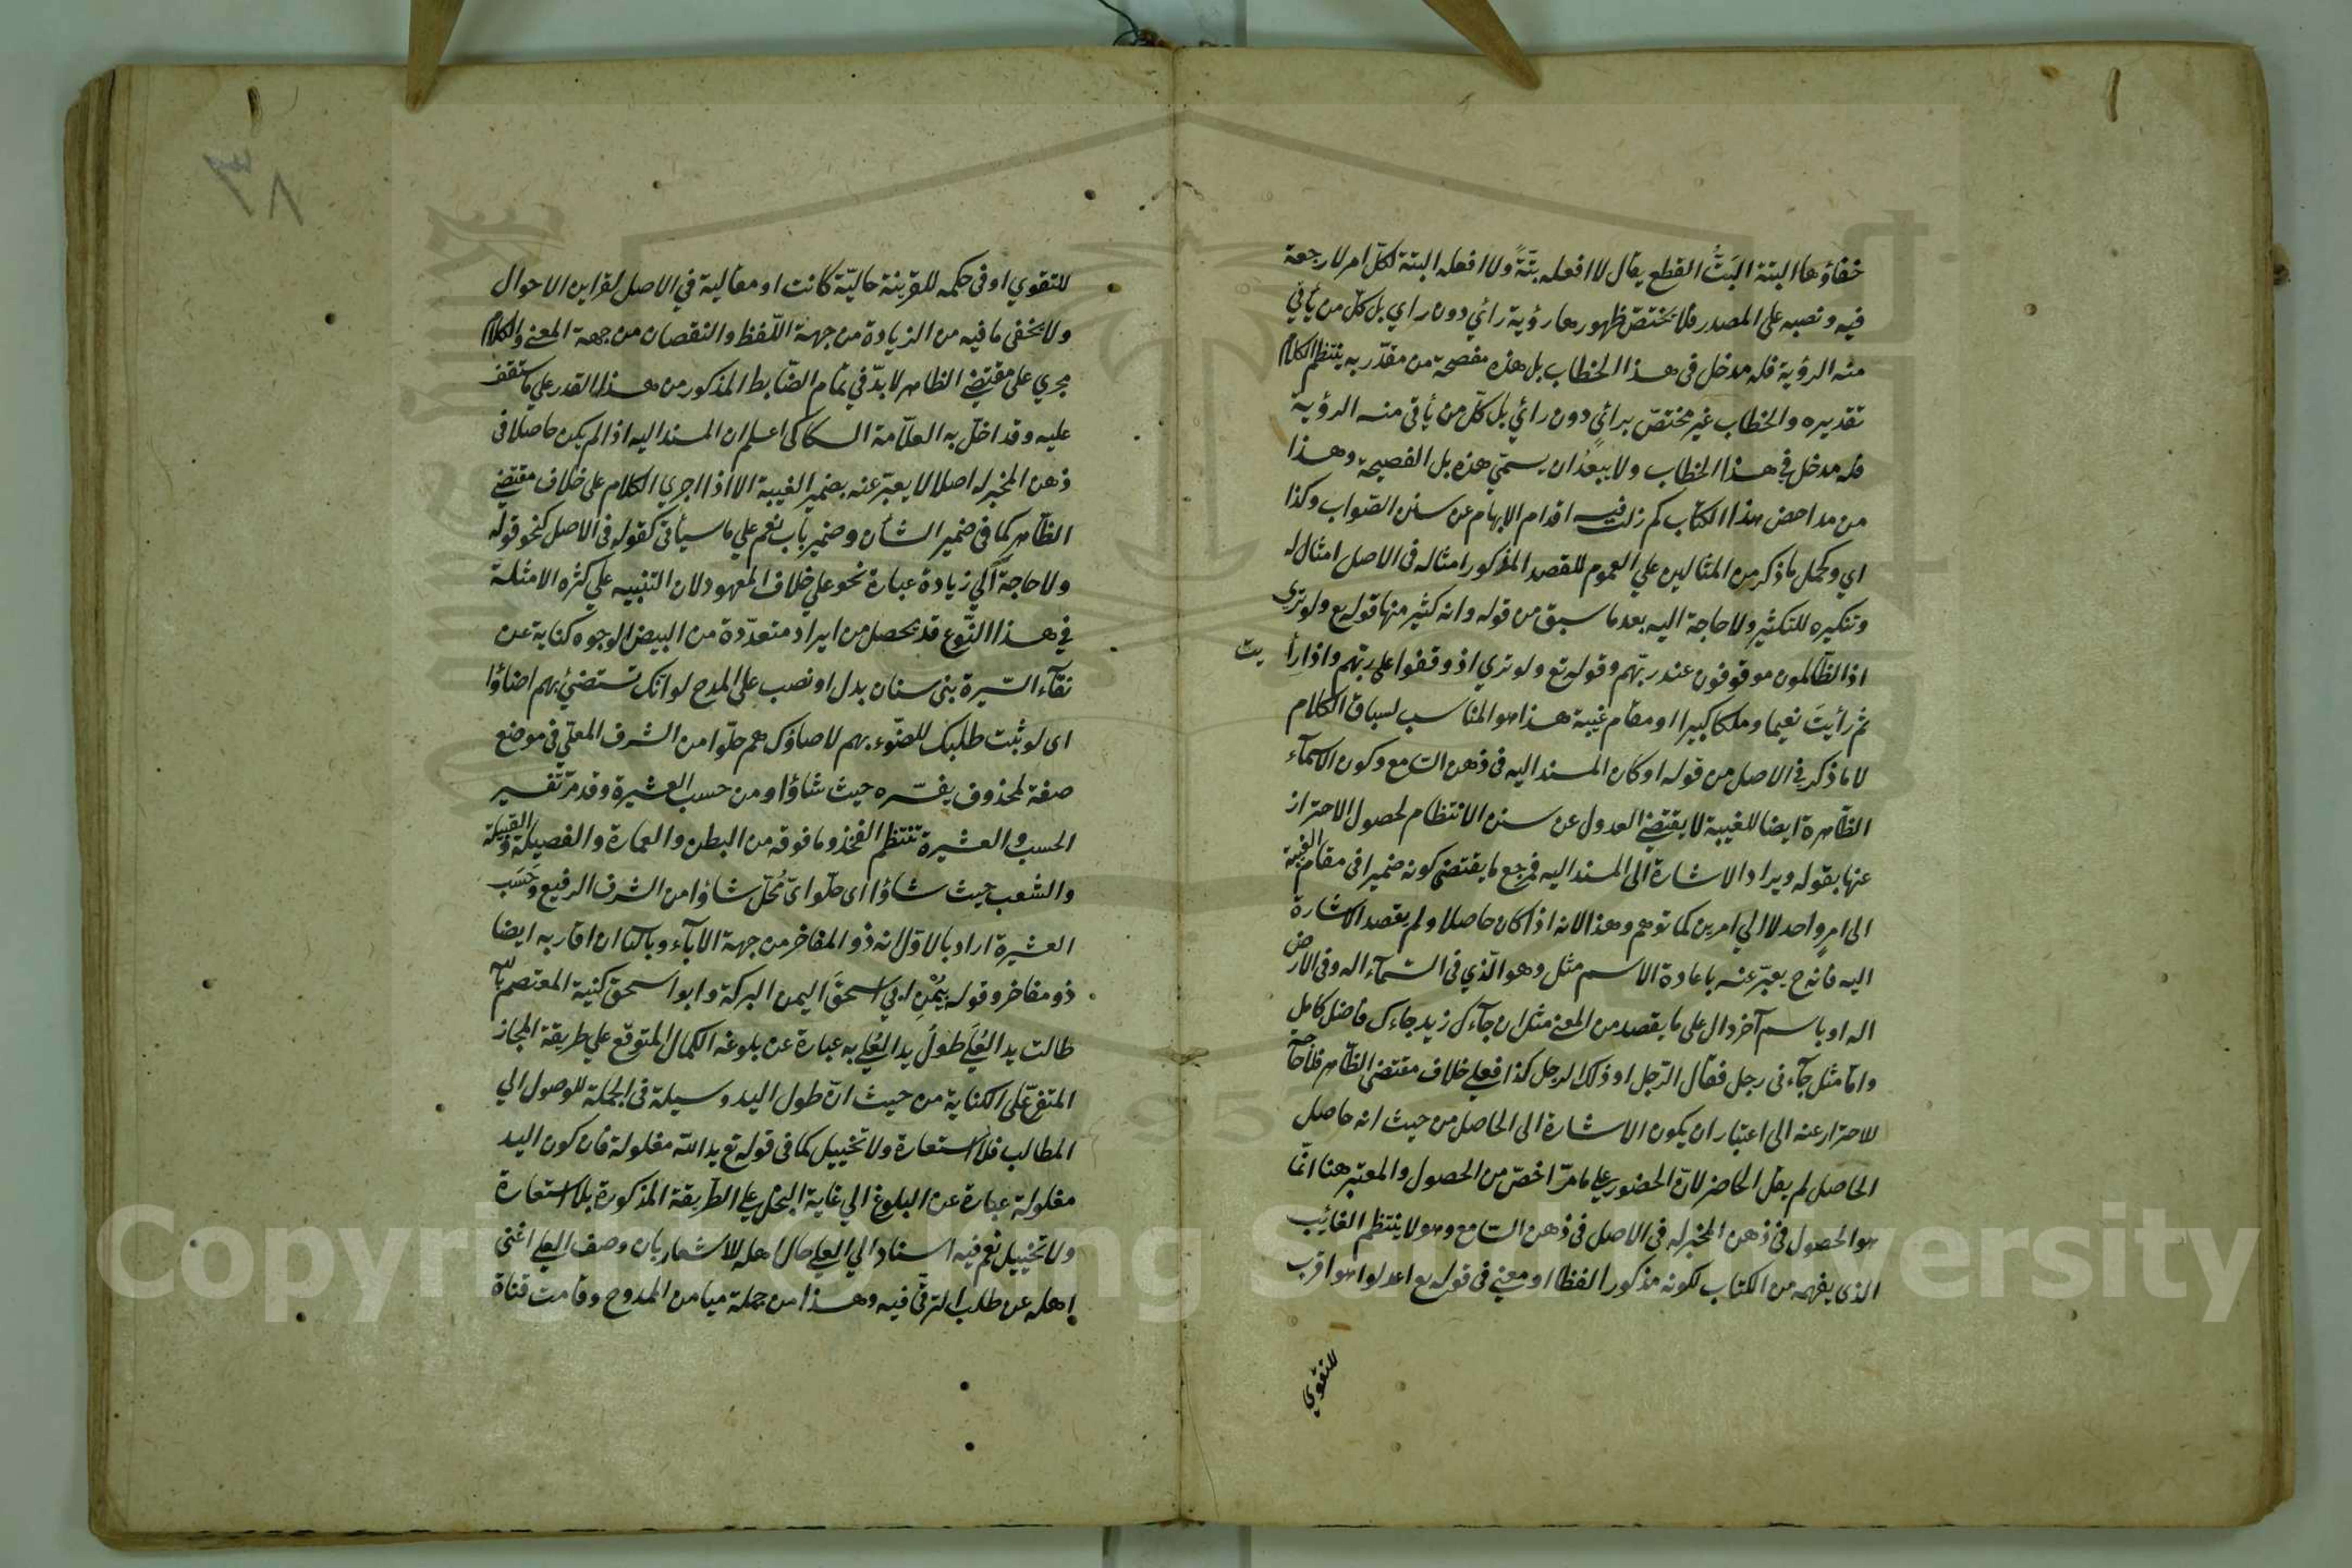 خفاؤها البتة البَتُّ القطع يقال لا افعله بتّةً ولا افعله البتة لكل امر لا رجعة
فيه ونصبه على المصدر فلا يختصّ ظهورها رؤية رائي دون راي بل كل من يأتي
منه الرؤية فله مدخل فى هذا الخطاب بل هذه مفصحة من مقدّر به ينتظم الكلام
تقديره والخطاب غير مختصّ برائي دون رائي بل كلّ من يأتى منه الرؤية
فله مدخل في هذا الخطاب ولا يبعدُ ان يسمّي هذه بل الفصيحة وهذا
من مداحض هذا الكتاب كم زلت فيه اقدام الابهام عن سنن الصواب وكذا
اي وكحمل ما ذكر من المثالين علي العموم للقصد المذكور امثاله فى الاصل امثال له
وتنكيره للتكثير ولا حاجة اليه بعد ما سبق من قوله وانه كثير منها قوله تع ولو تري
اذ الظّالمون موقوفون عند ربّهم وقوله تع ولو تري اذ وقفوا على ربّهم واذا رأيت
ثمّ رأيتَ نعيما وملكا كبيرا او مقام غيبة هذا هو المناسب لسباق الكلام
لا ما ذكر في الاصل من قوله او كان المسند اليه فى ذهن السّامع وكون الاسمآء
الظّاهرة ايضا للغيبة لا يقتضي العدول عن سنن الانتظام لحصول الاحتراز
عنها بقوله ويراد الاشارة الى المسند اليه فمرجع ما يقتضي كونه ضميرا فى مقام الغيبة
الى امرٍ واحد لا الي امرين كما توهم وهذا لانه اذا كان حاصلا ولم يقصد الاشارة
اليه فانه ح يعبّر عنه باعادة الاسم مثل وهو الّذي فى السّمآء اله وفى الارض
اله او باسم آخر دال على ما يقصد من المعنى مثل ان جآءك زيد جاءك فاضل كامل
وامّا مثل جآءنى رجل فقال الرّجل او ذلك الرجل كذا فعلي خلاف مقتضى الظّاهر فلا حاجة
للاحتراز عنه الى اعتبار ان يكون الاشارة الى الحاصل من حيث انه حاصل
الحاصل لم يقل الحاضر لانّ الحضور علي ما مرّ اخصّ من الحصول والمعتبر هنا انّما
هو الحصول فى ذهن المخبر له فى الاصل فى ذهن السّامع وهو لا ينتظم الغائب
الذى يفهم من الكتاب لكونه مذكورا لفظا او معنى فى قوله تع اعدلوا هو اقرب
للتقوي
٣٨
للتقوي او فى حكمه للقرينة حاليّة كانت او مقالية في الاصل لقراين الاحوال
ولا يخفى ما فيه من الزيادة من جهة اللّفظ والنقصان من جهة المعنى والكلام
مجري على مقتضي الظاهر لا بدّ في تمام الضّابط المذكور من هذا القدر علي ما ستقف
عليه وقد اخلّ به العلاّمة السكاكى اعلم ان المسند اليه اذا لم يكن حاصلا فى
ذهن المخبر له اصلا لا يعبّر عنه بضمير الغيبة الا اذا اجري الكلام على خلاف مقتضي
الظّاهر كما فى ضمير الشأن وضمير باب نعم علي ما سيأتى كقوله فى الاصل كنحو قوله
ولا حاجة الي زيادة عبارة نحو علي خلاف المعهود لان التنبيه علي كثرة الامثلة
في هذا النّوع قد يحصل من ايراد متعدّدة من البيض الوجوه كناية عن
نقآء السّيرة بنى سنان بدل او نصب على المدح لو انّك تستضئ بهم اضاؤا
اى لو ثبت طلبك للضّوء بهم لاضاؤك هم حلّوا من الشرف المعلّى فى موضع
صفة لمحذوف يفسّره حيث شاؤا ومن حسب العشيرة وقد مرّ تفسير
الحسب والعشيرة تنتظم الفخذ وما فوقه من البطن والعمارة والفصيلة والقبيلة
والشعب حيث شاؤا اى حلّوا اىّ محلّ شاؤا من الشرف الرفيع وحسب
العشيرة اراد بالاوّل انه ذو المفاخر من جهة الآباء وبالثانى ان اقاربه ايضا
ذو مفاخر وقوله بيُمْنِ ابي اسحقَ اليمن البركة وابو اسحق كنية المعتصم بالله
طالت يد العُلَي طولُ يد العُلي به عبارة عن بلوغه الكمال المتوقّع علي طريقة المجاز
المتفرّع على الكناية من حيث انّ طول اليد وسيلة فى الجملة للوصول الي
المطالب فلا استعارة ولا تخييل كما فى قوله تع يد الله مغلولة فان كون اليد
مغلولة عبارة عن البلوغ الي غاية البخل علي الطّريقة المذكورة بلا استعارة
ولا تخييل نعم فيه اسناد الي العلي حال اهله للاشعار بان وصف العلي اغنى
اهله عن طلب الترقّي فيه وهذا من جملة ميامن الممدوح وقامت قناة
Copyright © King Saud University